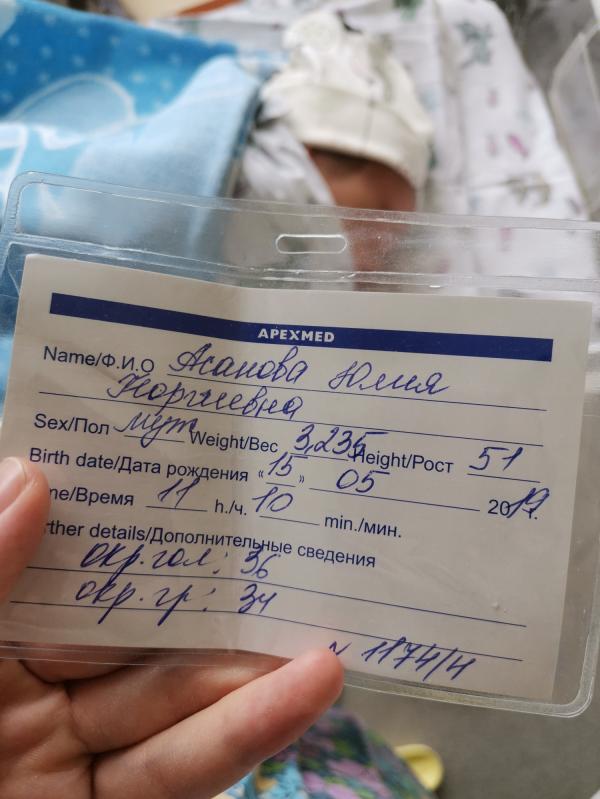 APEXMED
Name/Ф.И.О Асанова Юлия
Sex/Пол муж Weight/Вес 3,235 Height/Рост 51
Birth date/Дата рождения «15» 05 2019 г.
me/Время 11 h./ч. 10 min./мин.
rther details/Дополнительные сведения
окр. гол: 36
окр. гр: 34
N 1174/н